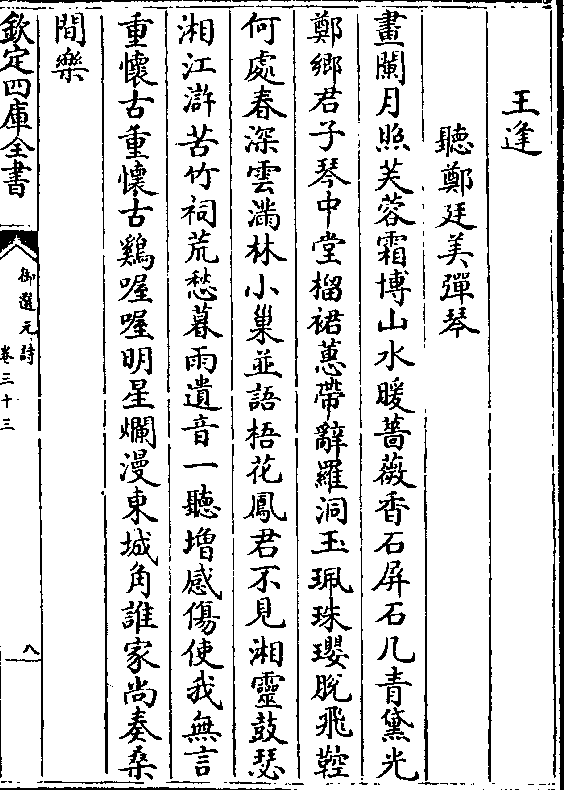 王逢
聽鄭廷美彈琴
畫闌月照芙蓉霜博山水暖薔薇香石屏石几青黛光
鄭鄉君子琴中堂榴裙蕙帶辭羅洞玉珮珠瓔脫飛鞚
何處春深雲滿林小巢並語梧花鳳君不見湘靈鼓瑟
湘江滸苦竹祠荒愁暮雨遺音一聽增感傷使我無言
重懷古重懷古鷄喔喔明星爛漫東城角誰家尚奏桑
間樂
欽定四庫全書
御選元詩
卷三十三
八